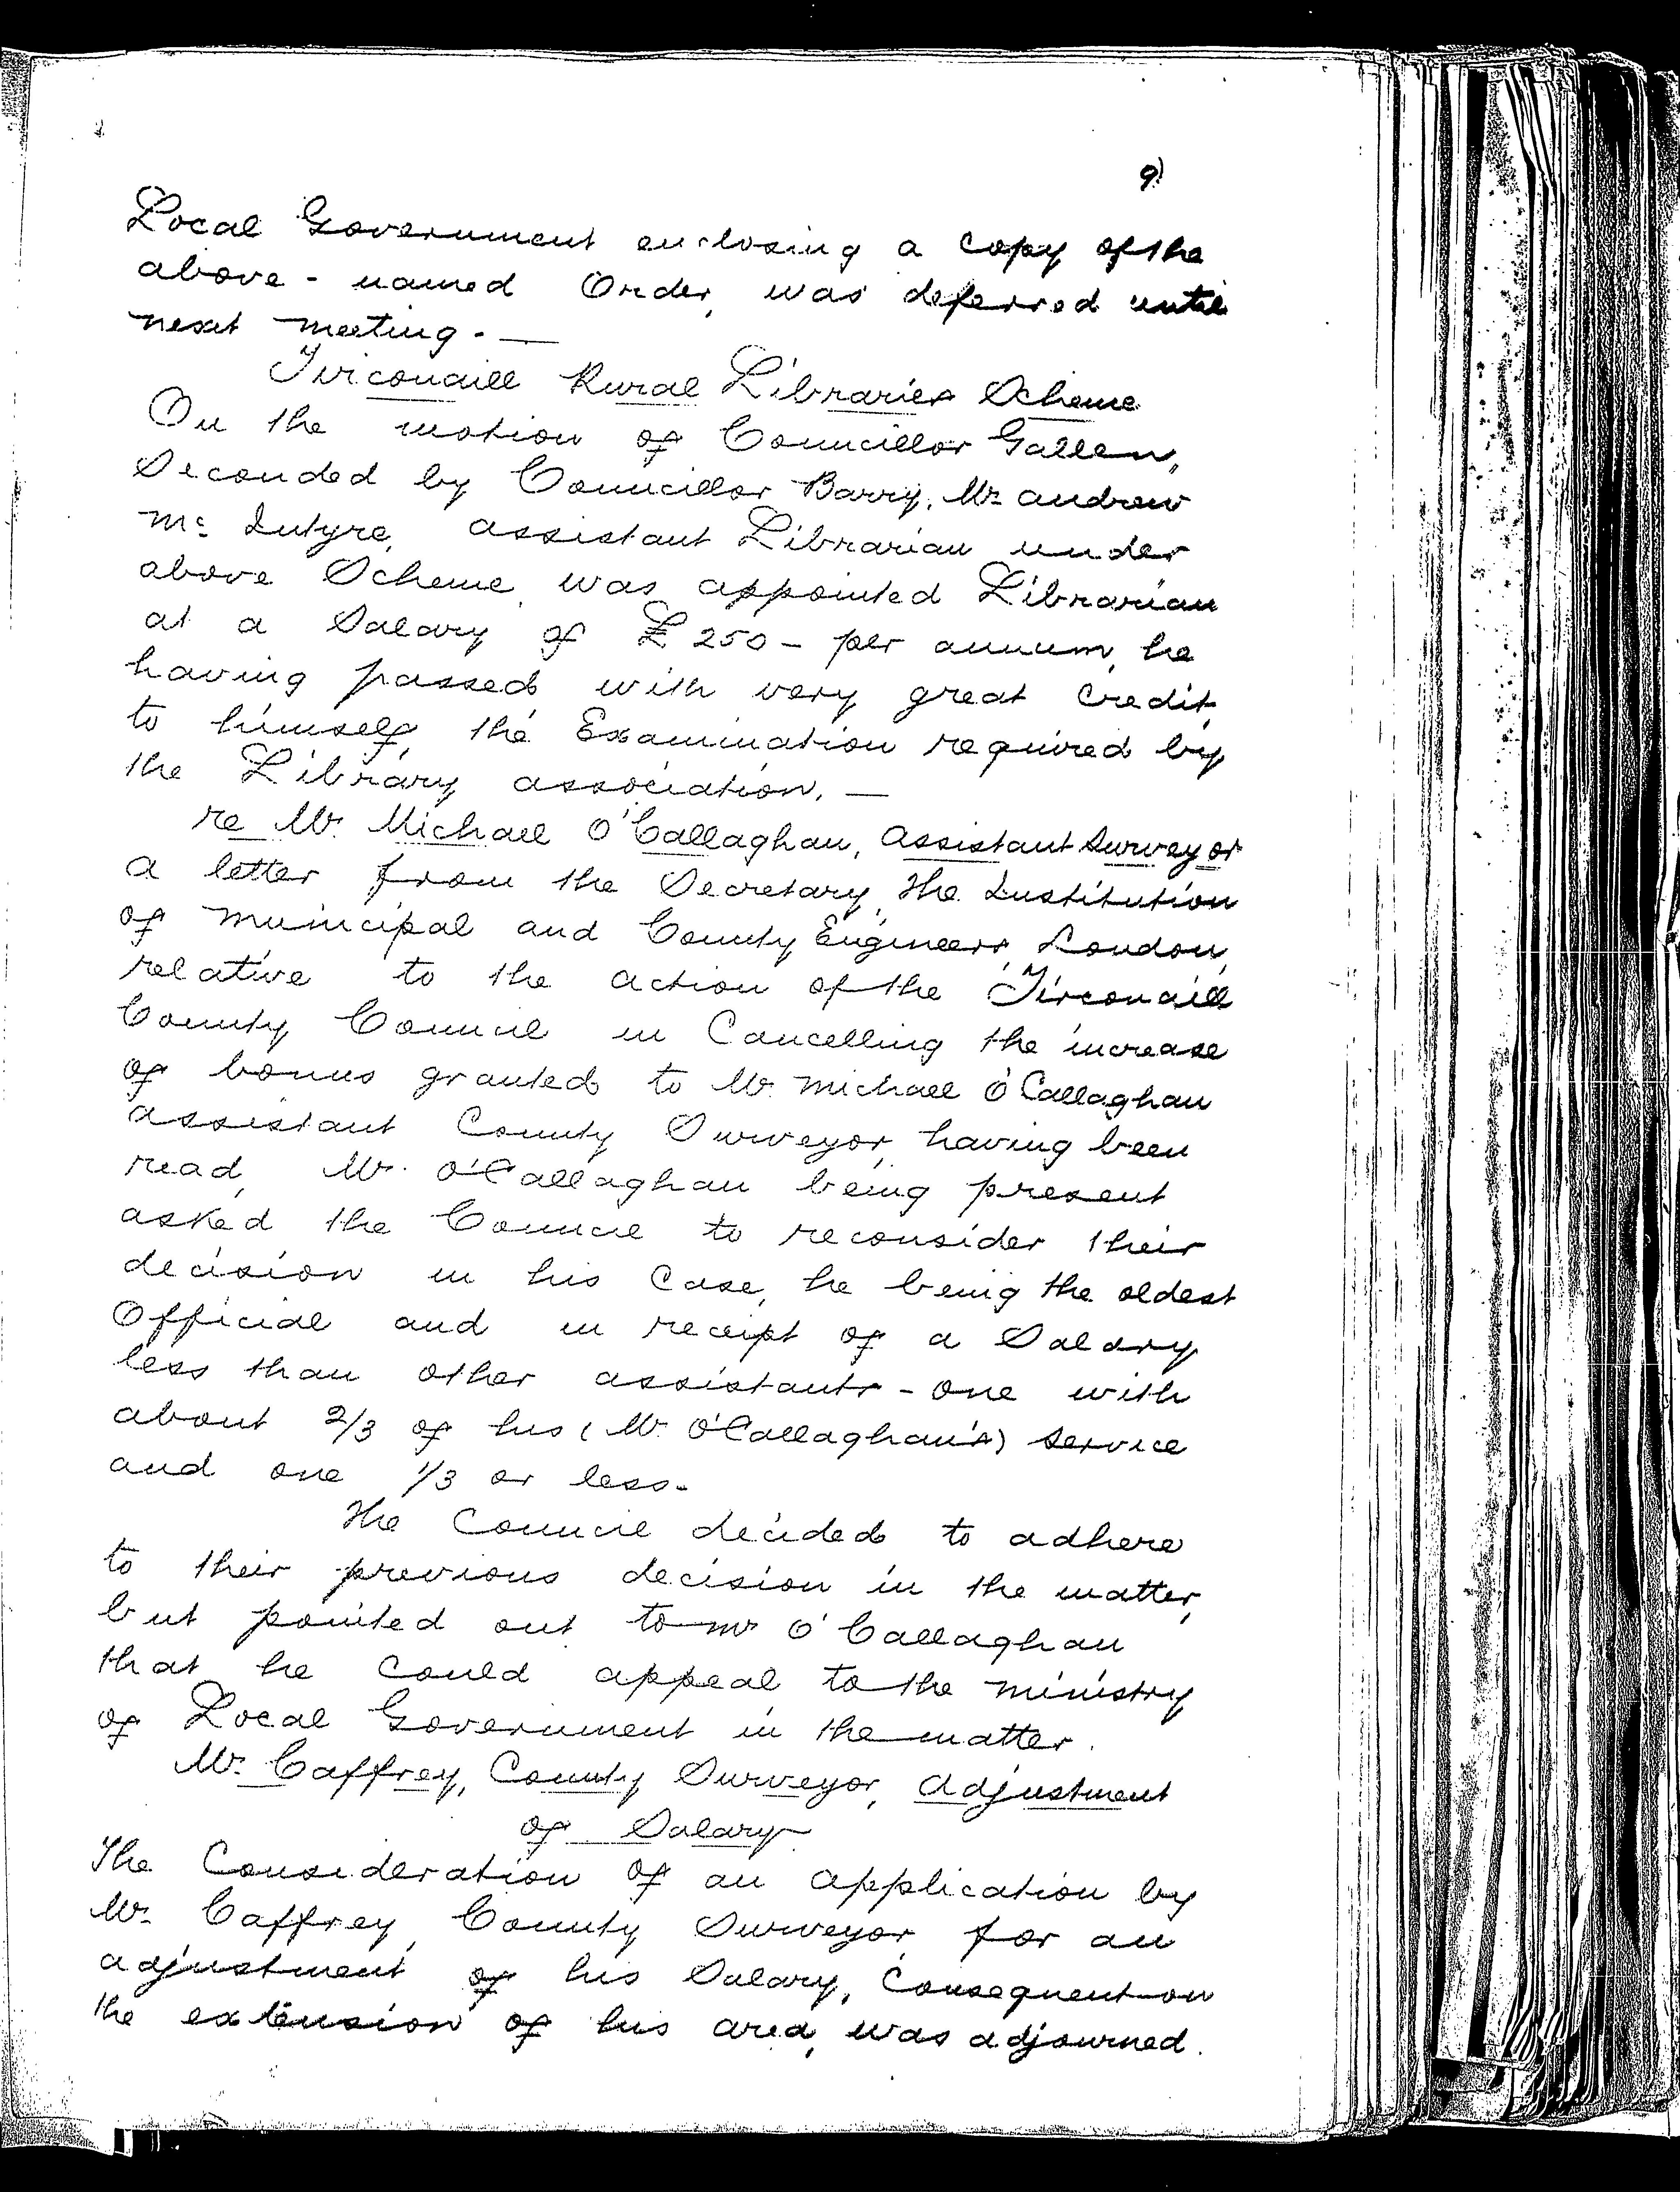 9)
Local Government enclosing a copy of the
above-named Order, was deferred until
next meeting. —
Tirconaill Rural Libraries Scheme
On the motion of Councillor Gallen,
Seconded by Councillor Barry, Mr Andrew
Mc Intyre, Assistant Librarian under
above Scheme, was appointed Librarian
at a Salary of £250- per annum, he
having passed with very great Credit
to himself, the Examination required by
the Library Association. —
re Mr. Michael O'Callaghan, Assistant Surveyor
A letter from the Secretary, The Institution
of Municipal and County Engineers, London,
relative to the action of the Tirconaill
County Council in Cancelling the increase
of bonus granted to Mr. Michael O'Callaghan
Assistant County Surveyor, having been
read, Mr. O'Callaghan being present
asked the Council to reconsider their
decision in his Case, he being the oldest
Official and in receipt of a Salary
less than other assistants - one with
about 2/3 of his (Mr. O'Callaghan's) service
and one 1/3 or less.
The Council decided to adhere
to their previous decision in the matter,
but pointed out to Mr O'Callaghan
that he could appeal to the Ministry
of Local Government in the matter.
Mr. Caffrey, County Surveyor, Adjustment
of Salary
The Consideration of an application by
Mr. Caffrey, County Surveyor, for an
adjustment of his Salary, Consequent on
the extension of his area, was adjourned.